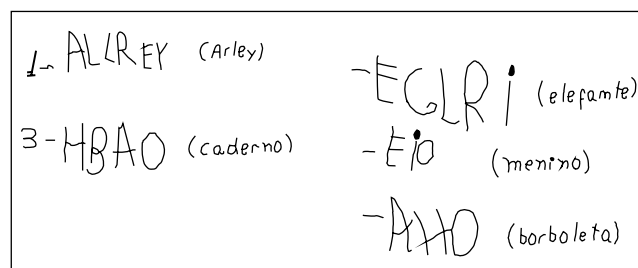 1- ALLREY (Arley)
3- HBAO (caderno)
- EGLRi (elefante)
- Eio (menino)
- AHO (borboleta)